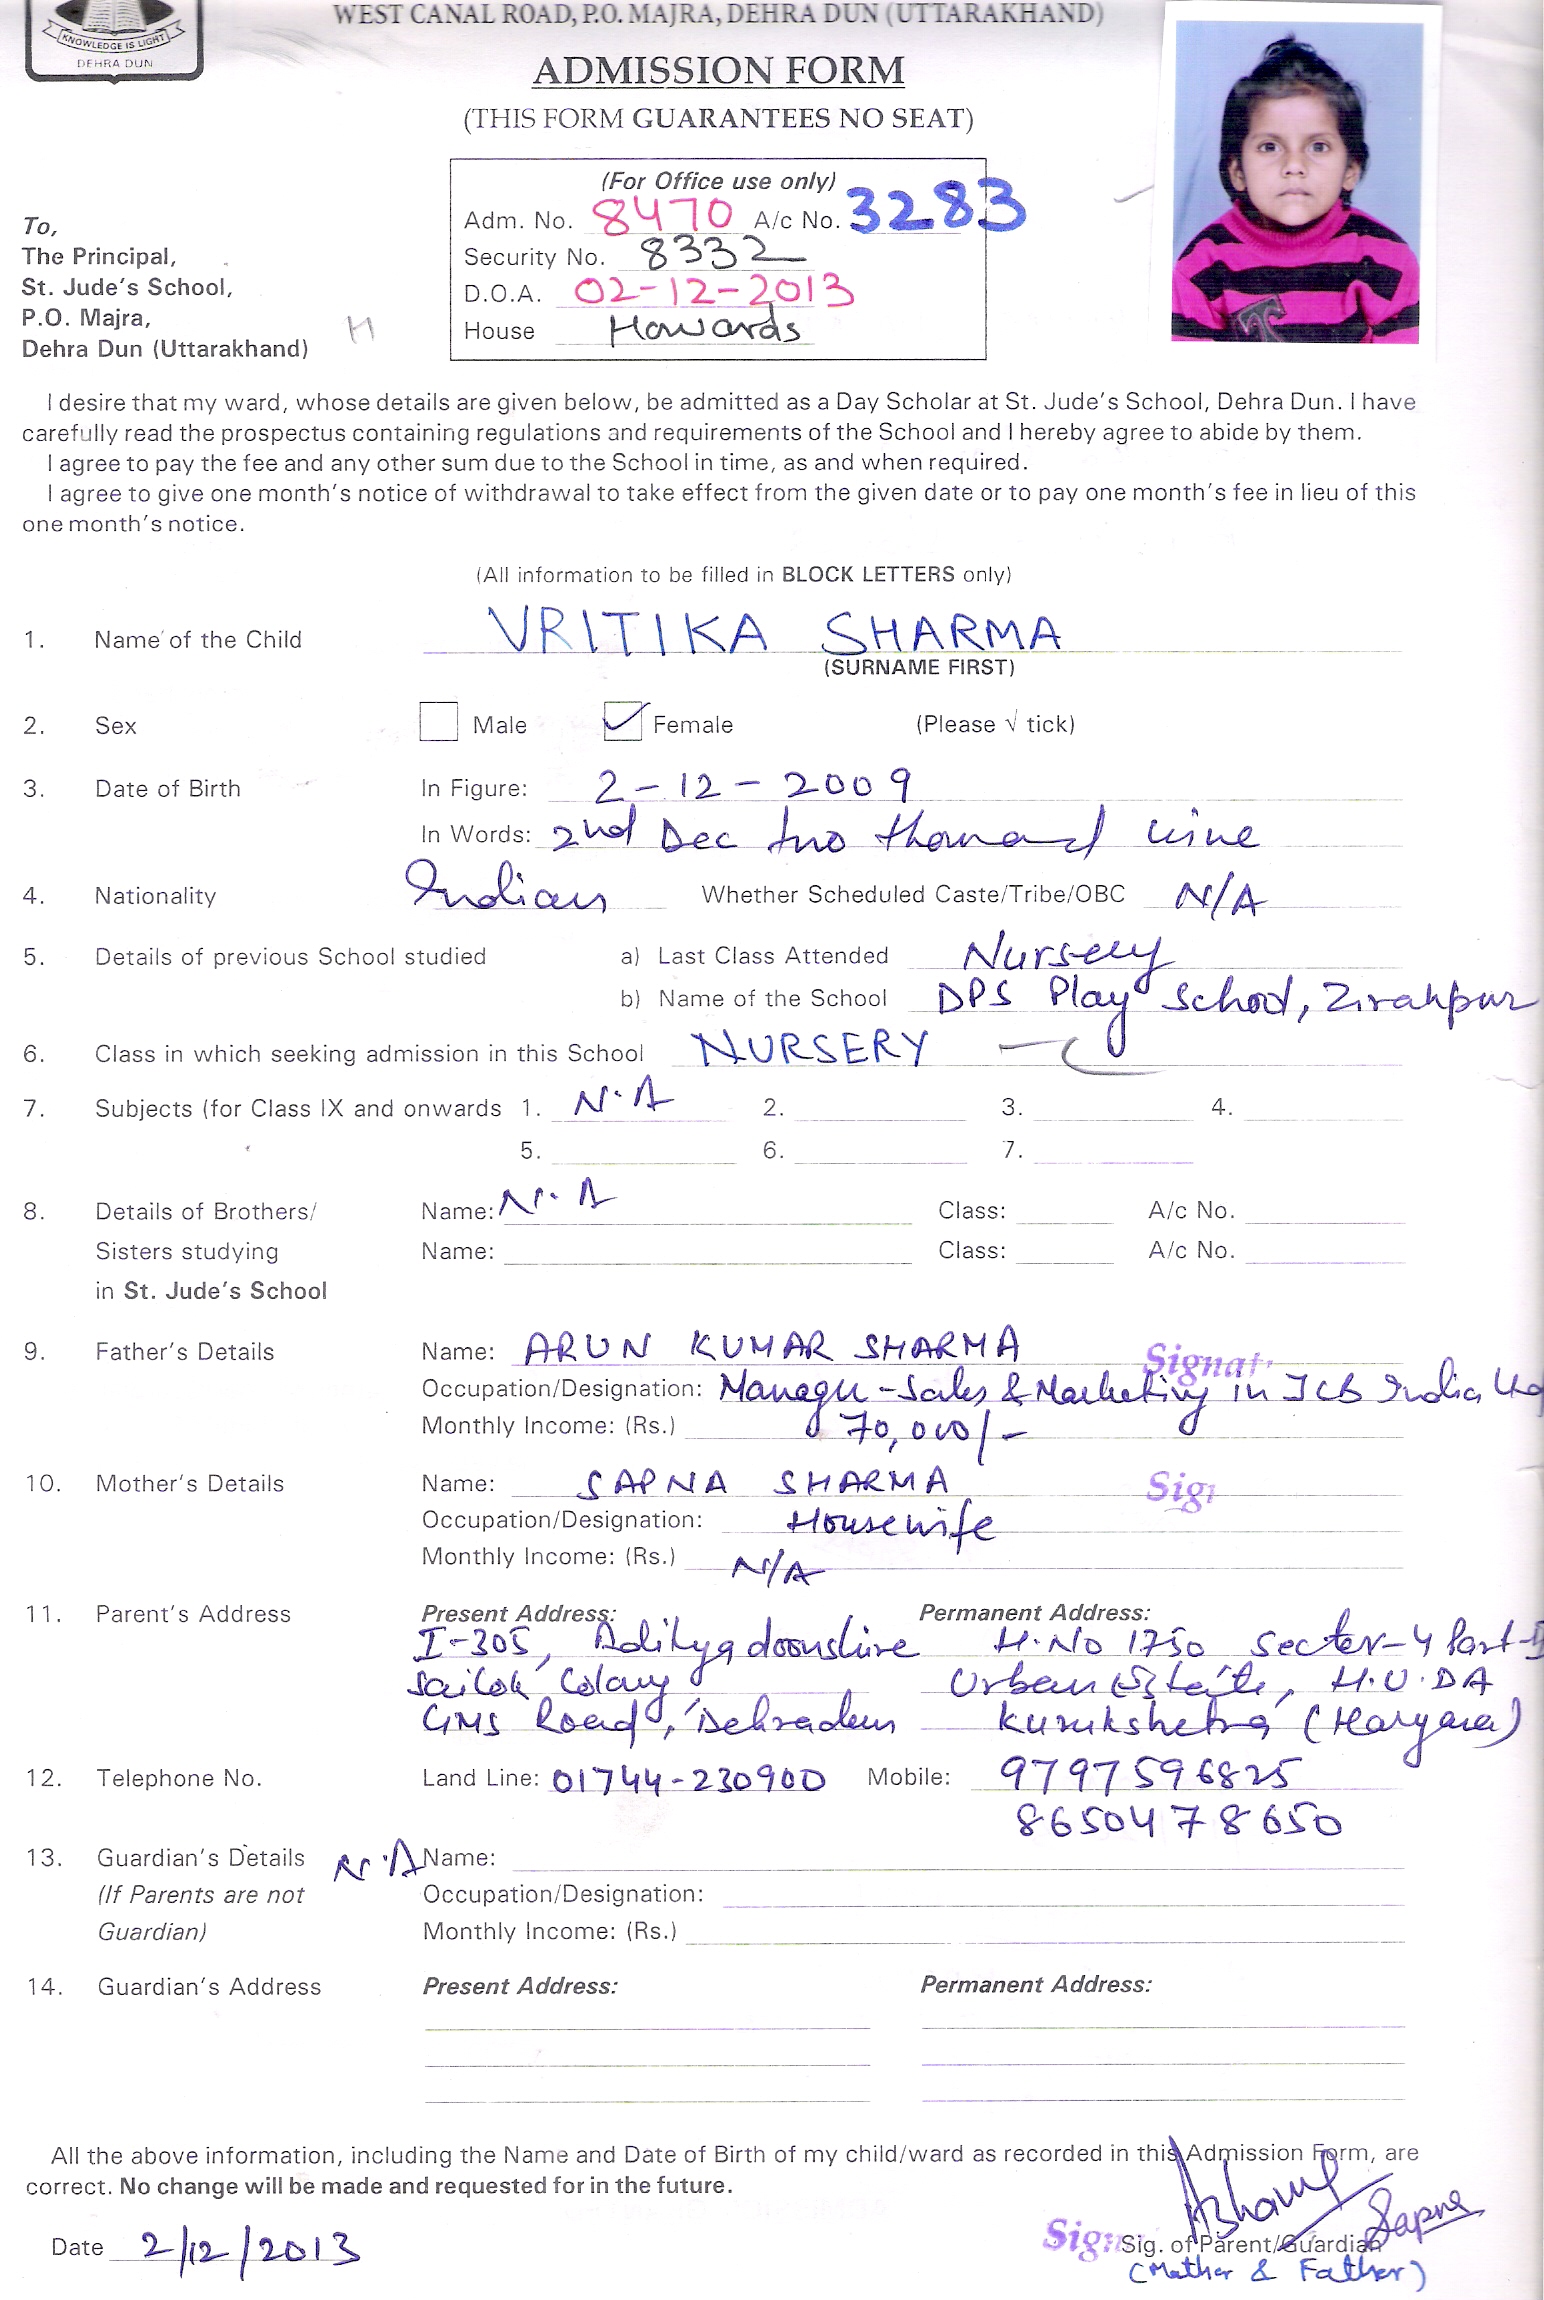 KNOWLEDGE IS LIGHT
DEHRA DUN
WEST CANAL ROAD, P.O. MAJRA, DEHRA DUN (UTTARAKHAND)
ADMISSION FORM
(THIS FORM GUARANTEES NO SEAT)
(For Office use only)
Adm. No. 8470 A/c No. 3283
Security No. 8332
D.O.A. 02-12-2013
House Howards
To,
The Principal,
St. Jude's School,
P.O. Majra,
Dehra Dun (Uttarakhand) H
I desire that my ward, whose details are given below, be admitted as a Day Scholar at St. Jude's School, Dehra Dun. I have
carefully read the prospectus containing regulations and requirements of the School and I hereby agree to abide by them.
I agree to pay the fee and any other sum due to the School in time, as and when required.
I agree to give one month's notice of withdrawal to take effect from the given date or to pay one month's fee in lieu of this
one month's notice.
(All information to be filled in BLOCK LETTERS only)
1. Name of the Child VRITIKA SHARMA
(SURNAME FIRST)
2. Sex Male ✓ Female (Please √ tick)
3. Date of Birth In Figure: 2-12-2009
In Words: 2nd Dec two thousand nine
4. Nationality Indian Whether Scheduled Caste/Tribe/OBC N/A
5. Details of previous School studied a) Last Class Attended Nursery
b) Name of the School DPS Play School, Zirakpur
6. Class in which seeking admission in this School NURSERY
7. Subjects (for Class IX and onwards 1. N.A 2. 3. 4.
5. 6. 7.
8. Details of Brothers/ Name: N.A Class: A/c No.
Sisters studying Name: Class: A/c No.
in St. Jude's School
9. Father's Details Name: ARUN KUMAR SHARMA Signat
Occupation/Designation: Manager - Sales & Marketing in JCB India
Monthly Income: (Rs.) 70,000/-
10. Mother's Details Name: SAPNA SHARMA Sig
Occupation/Designation: Housewife
Monthly Income: (Rs.) N/A
11. Parent's Address Present Address: Permanent Address:
I-305, Aditya doonshire H.No 1750 Sector-4 Part-II
Sailok Colony Urban Estate, H.U.DA
GMS Road, Dehradun Kurukshetra (Haryana)
12. Telephone No. Land Line: 01744-230900 Mobile: 9797596825
8650478650
13. Guardian's Details N.A Name:
(If Parents are not Occupation/Designation:
Guardian) Monthly Income: (Rs.)
14. Guardian's Address Present Address: Permanent Address:
All the above information, including the Name and Date of Birth of my child/ward as recorded in this Admission Form, are
correct. No change will be made and requested for in the future.
Sapna
Date 2/12/2013 Sign Sig. of Parent/Guardian
(Mother & Father)